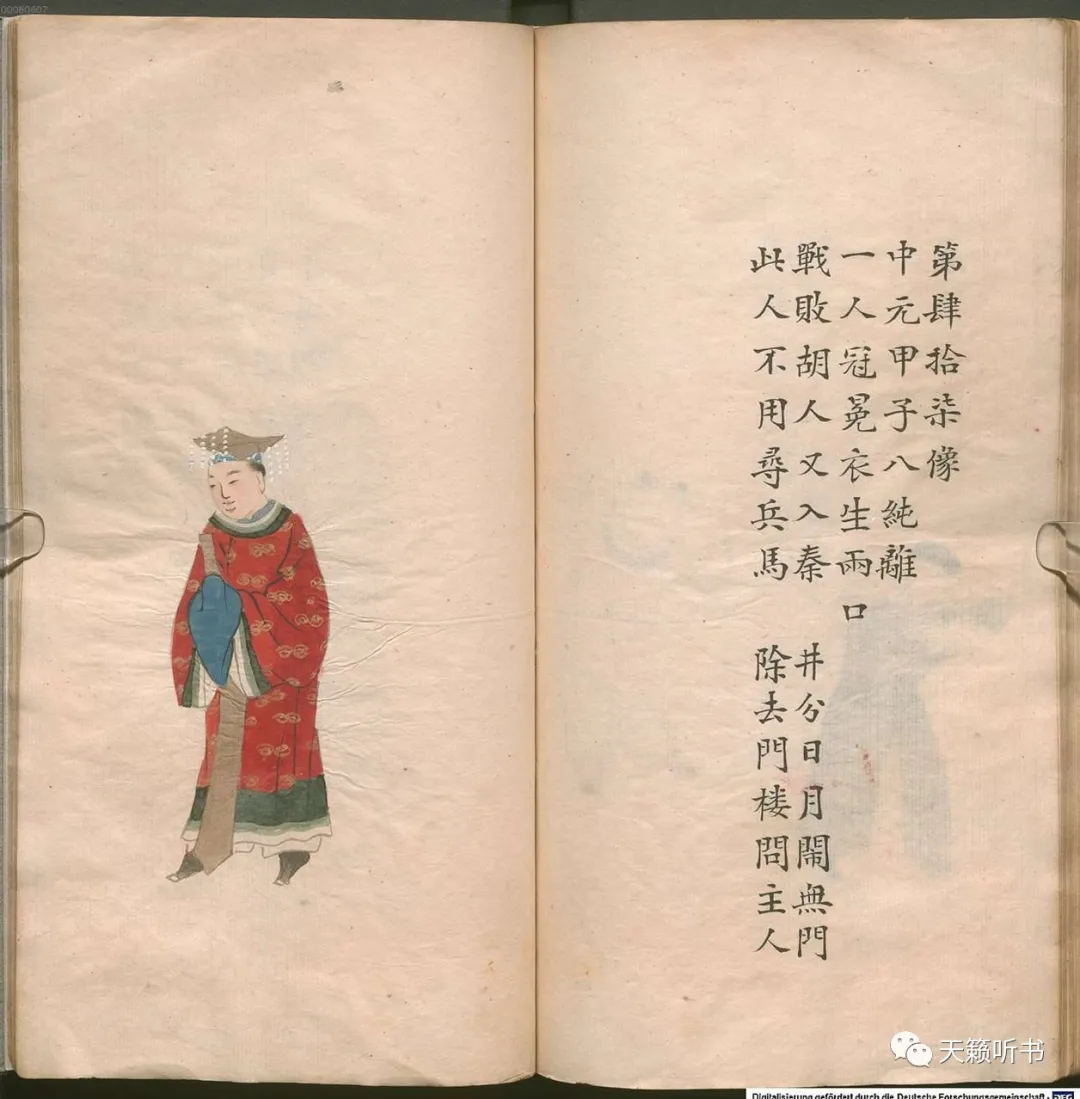 00080607
第肆拾柒像
中元甲子八純離
一人冠冕衣生兩口
戰敗胡人又入秦 井分日月鬧無門
此人不用尋兵馬 除去門楼問主人
天籁听书
Digitalisierung gefördert durch die Deutsche Forschungsgemeinschaft - DFG